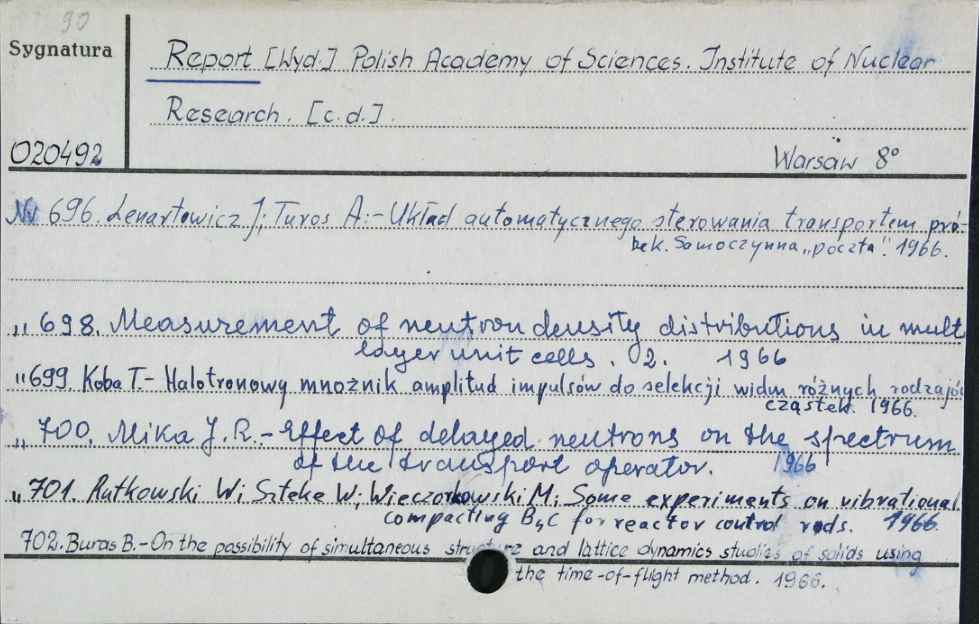 90
Sygnatura
Report [Wyd.] Polish Academy of Sciences. Institute of Nuclear
Research. [c.d.]
020492
Warsaw 8°
Nr 696. Lenartowicz J; Turos A:- Układ automatycznego sterowania transportem pró-
bek. Samoczynna „poczta". 1966.
„ 698. Measurement of neutron density distributions in mult
layer unit cells. 02. 1966
"699 Koba T.- Halotronowy mnożnik amplitud impulsów do selekcji widm różnych rodzajów
cząstek. 1966.
„ 700. Mika J.R.- Effect of delayed neutrons on the spectrum
of the transport operator. 1966
„ 701. Rutkowski W; Szteke W; Wieczorkowski M; Some experiments on vibrational
compacting B4C for reactor control rods. 1966
702. Buras B.- On the possibility of simultaneous structure and lattice dynamics studies of solids using
the time-of-flight method. 1966.